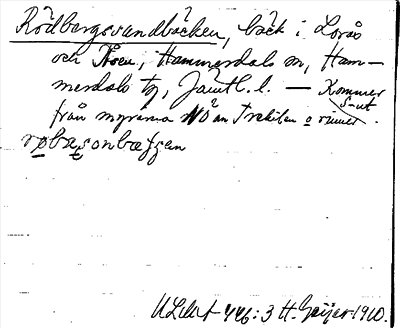 Rödbergsvandbäcken, bäck i Lorås
och Åsen, Hammerdals sn, Ham-
merdals tg, Jämtl. l. — Kommer
från myrarna NO om Trekilen o rinner
Sout
U.L.M.A. 446:3 H. Geijer 1910.